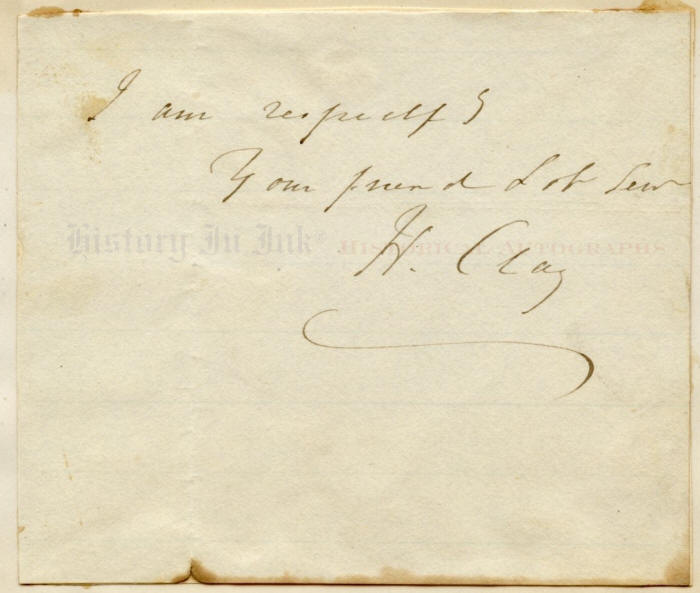 I am respectfy
Your friend & ob Serv
History In Ink® HISTORICAL AUTOGRAPHS
H. Clay